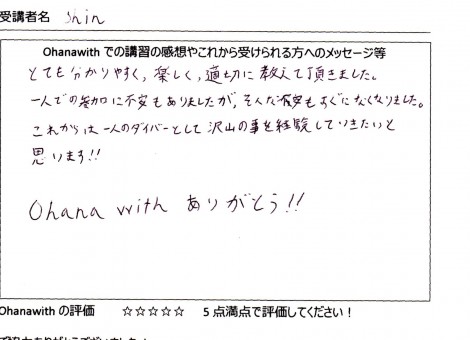 受講者名 Shin
Ohanawith での講習の感想やこれから受けられる方へのメッセージ等
とても分かりやすく，楽しく，適切に教えて頂きました。
一人での参加に不安もありましたが，そんな不安もすぐになくなりました。
これからは一人のダイバーとして沢山の事を経験していきたいと
思います!!
Ohana with ありがとう!!
Ohanawith の評価 ☆☆☆☆☆ 5 点満点で評価してください！